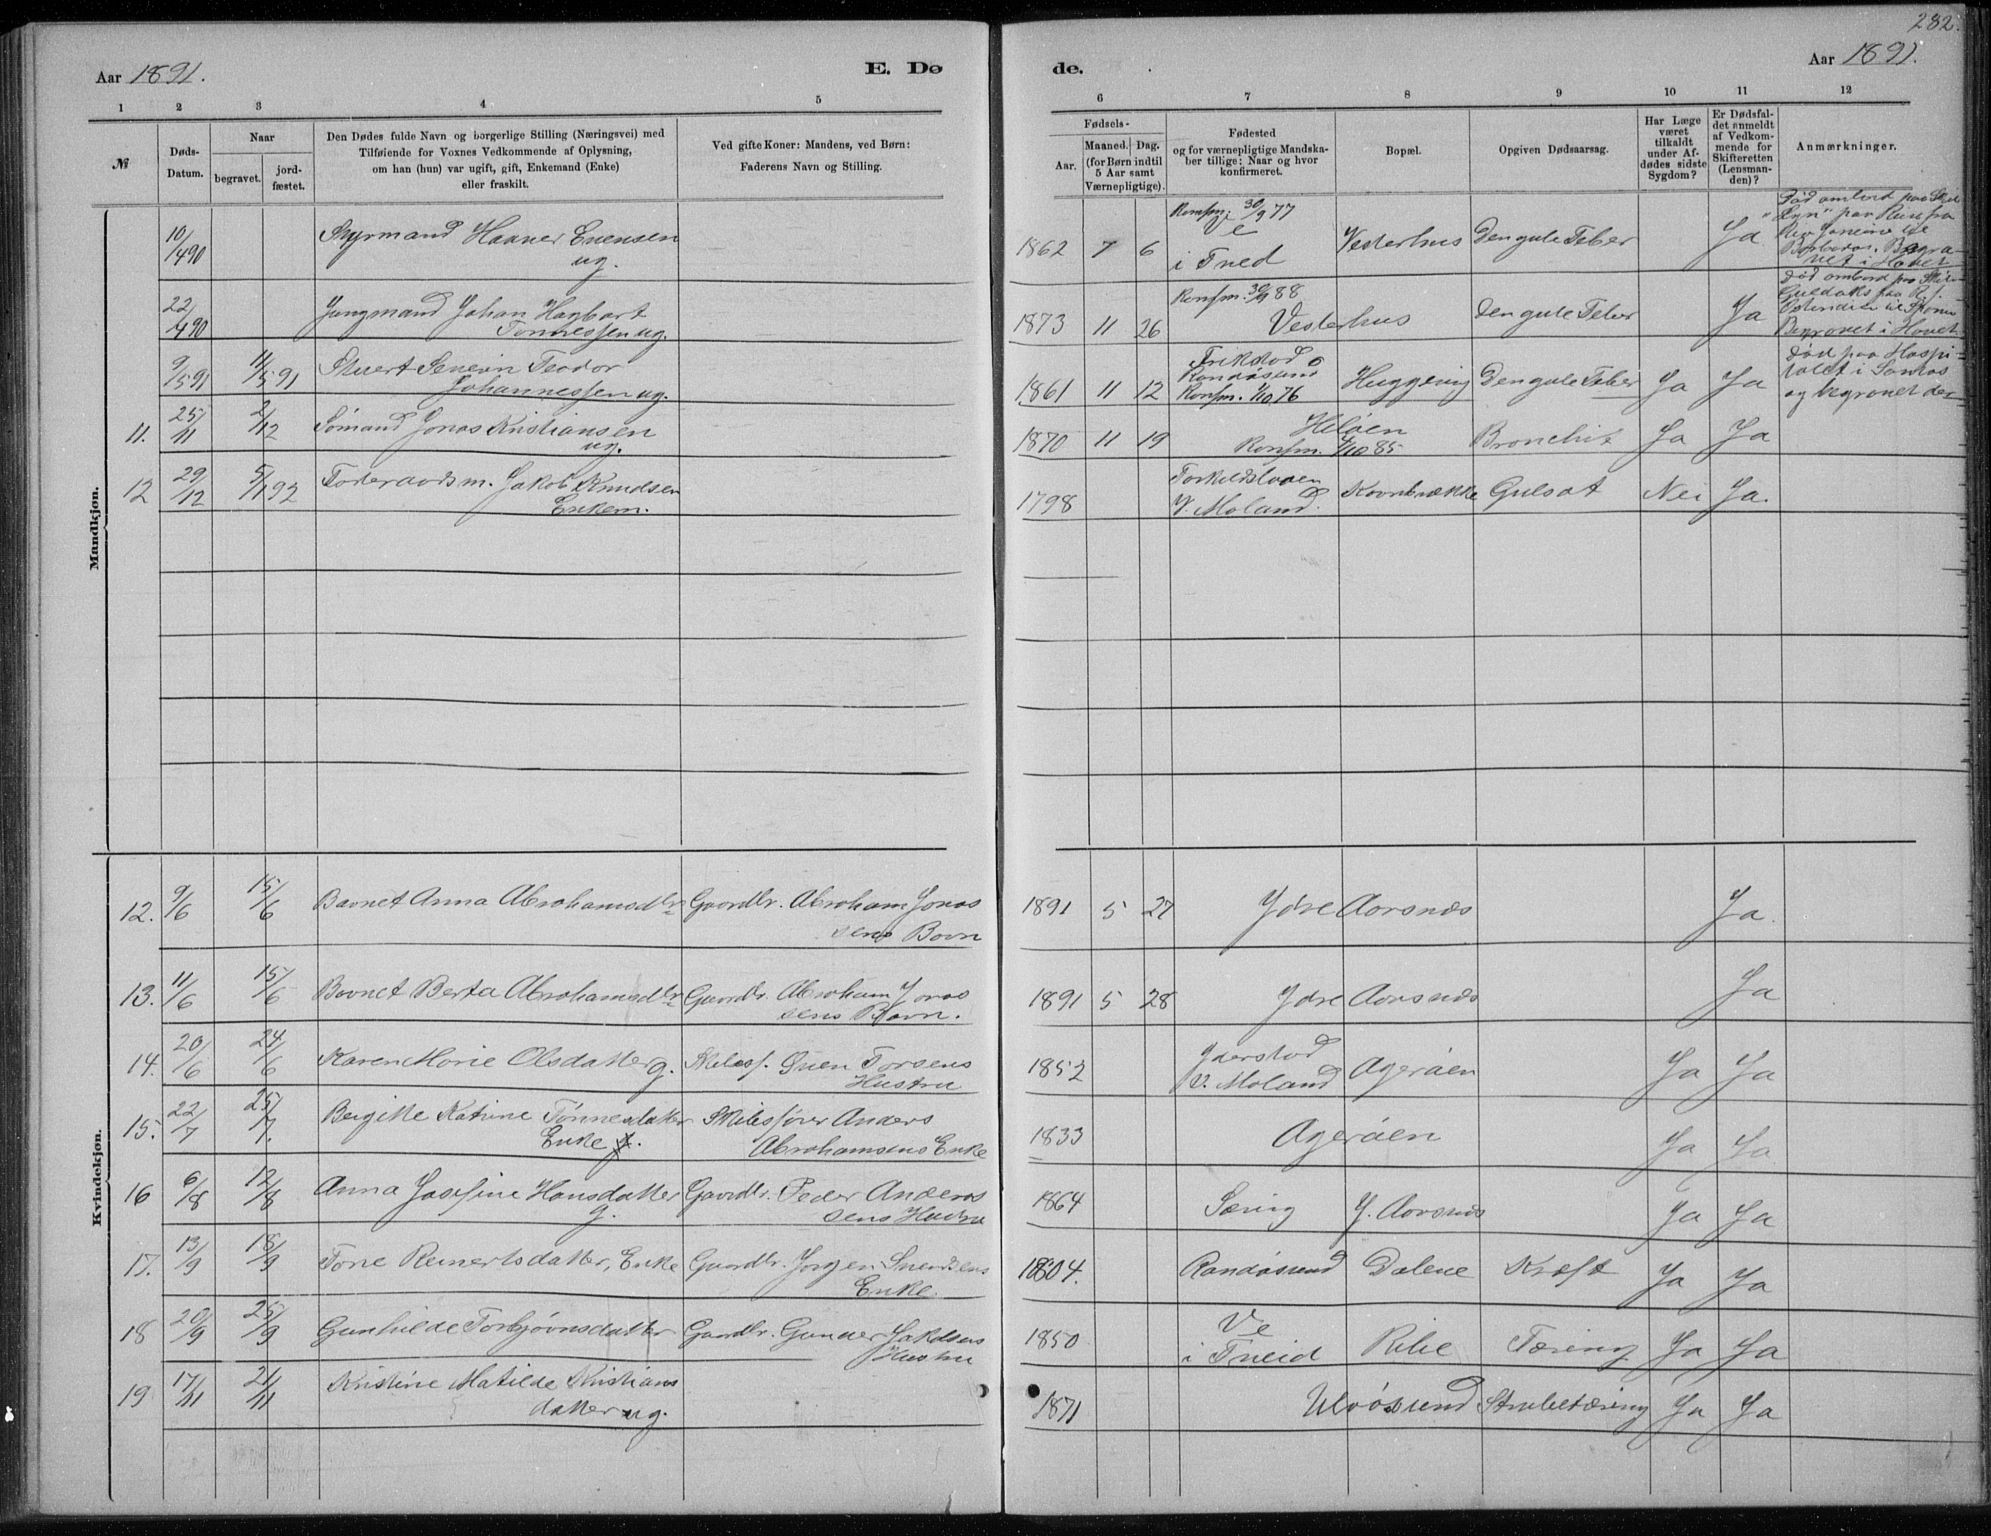 282.
Aar 1891.
E. Dø
de.
Aar 1891.
1 2 3 4 5
6 7 8 9 10 11 12
№
Døds-
Datum.
Naar
begravet.
jord-
fæstet.
Den Dødes fulde Navn og borgerlige Stilling (Næringsvei) med
Tilføiende for Voxnes Vedkommende af Oplysning,
om han (hun) var ugift, gift, Enkemand (Enke)
eller fraskilt.
Ved gifte Koner: Mandens, ved Børn:
Faderens Navn og Stilling.
Fødsels-
Aar.
Maaned. Dag.
(for Børn indtil
5 Aar samt
Værnepligtige).
Fødested
og for værnepligtige Mandska-
ber tillige: Naar og hvor
konfirmeret.
Bopæl.
Opgiven Dødsaarsag.
Har Læge
været
tilkaldt
under Af-
dødes sidste
Sygdom?
Er Dødsfal-
det anmeldt
af Vedkom-
mende for
Skifteretten
(Lensman-
den)?
Anmærkninger.
Mandkjøn.
10/4 90 Styrmand Havner Evensen
ug.
1862 7 6 Konfm. 30/9 77
Ve
i Tved
Vesterhus Den gule Feber Ja
Død ombord paa Skib
paa Reise fra
Rio Janeiro til
Barbados. Begra-
vet i Havet
22/4 90 Jungmand Johan Hagbart
Tønnessen ug.
1873 11 26 Konfm. 30/9 88
Vesterhus Den gule Feber Ja
Død ombord paa
Ostindien til
Begravet i Havet
9/5 91 11/5 91 Stuert Severin Teodor
Johannessen ug.
1861 11 12 Frikstad
Randøsund
Konfm. 1/10 76
Den gule Feber Ja Ja
Død paa Hospi-
talet i Santos
og begravet der
11. 25/11 2/12 Sømand Jonas Kristiansen
ug.
1870 11 19 Heløen
Konfm. 4/10 85
Bronchit Ja Ja
12 29/12 5/1 92 Føderaadsm. Jakob Knudsen
Enkem.
1798
V. Moland.
Gulsot Nei Ja.
Kvindekjøn.
12. 9/6 15/6 Barnet Anna Abrahamsdtr Gaardbr. Abraham Jonas
sens Barn
1891 5 27 Ydre Aarsnes Ja.
13. 11/6 15/6 Barnet Berta Abrahamsdtr Gaardbr. Abraham Jonas
sens Barn.
1891 5 28 Ydre Aarsnes Ja
14. 20/6 24/6 Karen Marie Olsdatter g. Skibsf. Sven Torsens
Hustru
1852
V. Moland Agerøen Ja Ja
15. 22/7 25/7. Bergitte Katrine Tønnesdatter Skibsfører Anders
Enke. Abrahamsens Enke
1833 Agerøen Ja Ja
16 6/8 12/8 Anna Josefine Hansdatter Gaardbr. Peder Anders
g. sens Hustru
1864 Sævig Y. Aarsnes Ja Ja
17. 13/9 18/9 Tone Reinertsdatter, Enke Gaardbr. Jørgen Svendsens
Enke.
1804. Randøsund Dalene Kræft Ja Ja
18 20/9 25/9 Gunhilde Torbjørnsdatter Gaardbr. Gunder Jakobsens
Hustru
1850 Ve
i Tveid Ribe Tæring Ja Ja
19 17/11 21/11 Kristine Matilde Kristians
datter ug.
1871 Ulvøsund Strubetæring Ja Ja